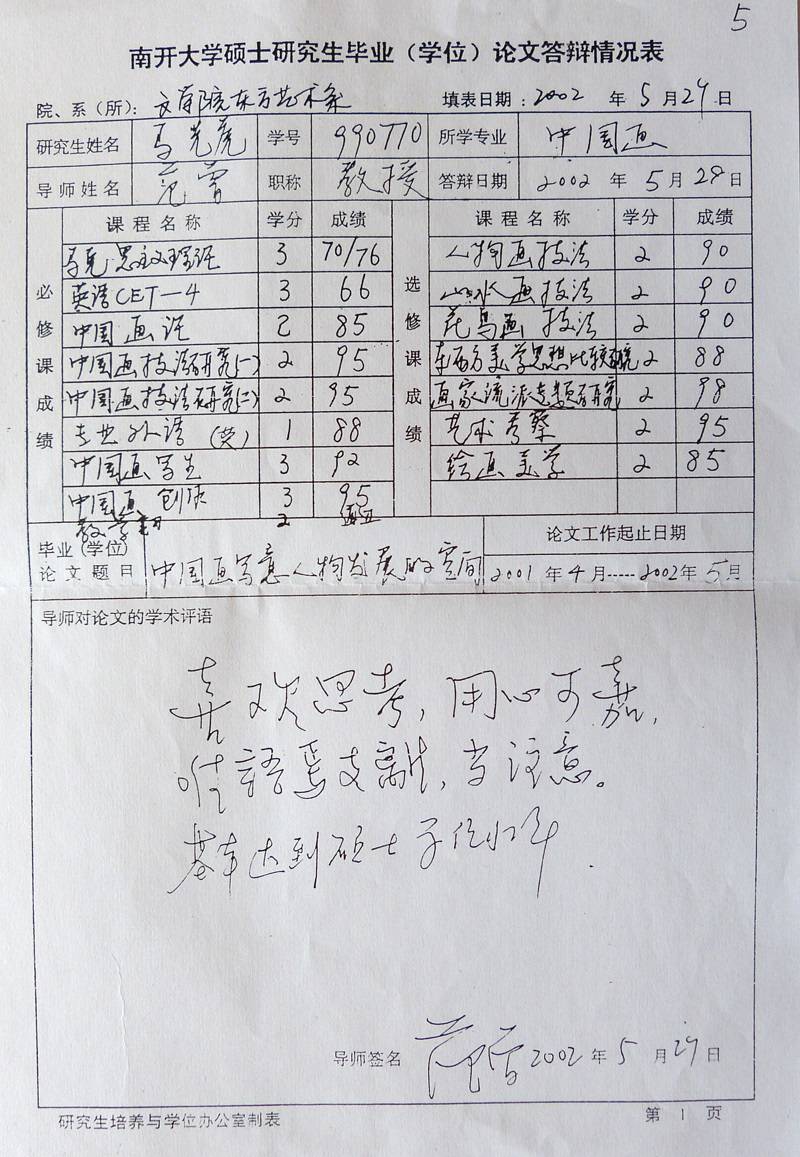 5
南开大学硕士研究生毕业（学位）论文答辩情况表
院、系（所）：文学院东方艺术系 填表日期：2002 年 5 月 29 日
研究生姓名 学号 990770 所学专业 中国画
导师姓名 范曾 职称 教授 答辩日期 2002 年 5 月 28 日
课程名称 学分 成绩 课程名称 学分 成绩
必修课成绩 选修课成绩
马克思主义理论 3 70/76 人物画技法 2 90
英语CET—4 3 66 山水画技法 2 90
中国画论 2 85 花鸟画技法 2 90
中国画技法研究(一) 2 95 东西方美学思想比较研究 2 88
中国画技法研究(二) 2 95 画家流派专题研究 2 98
专业外语（英） 1 88 艺术考察 2 95
中国画写生 3 92 绘画美学 2 85
中国画创作 3 95
教学 2
毕业（学位）论文题目 中国画写意人物发展的空间 论文工作起止日期
2001 年 4 月-----2002 年 5 月
导师对论文的学术评语
喜欢思考，用心可嘉，
唯語焉支離，当注意。
基本达到硕士学位水平.
导师签名 范曾 2002 年 5 月 29 日
研究生培养与学位办公室制表 第 1 页